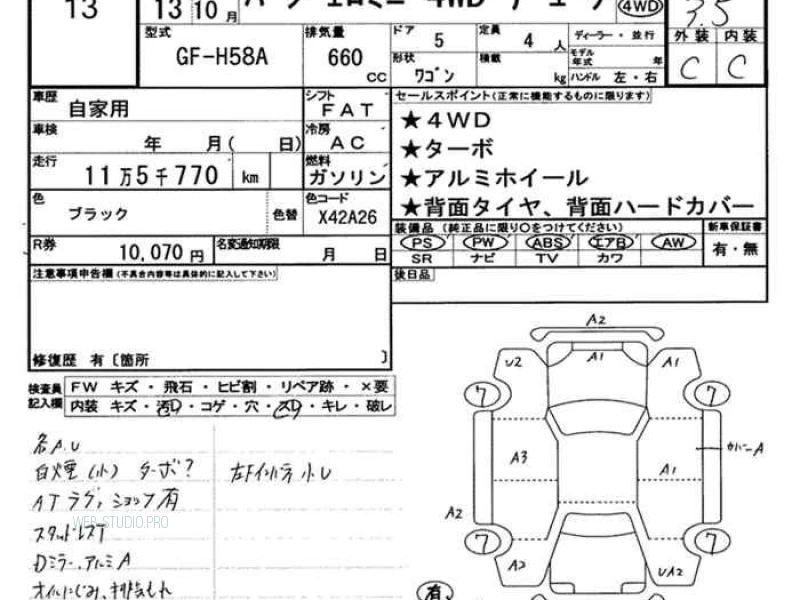 13
13 10 月
4WD
3.5
型式
GF-H58A
排気量
660
CC
ドア
5
定員
4 人
形状
ワゴン
積載
kg
ディーラー・並行
モデル年式 年
ハンドル 左・右
外装 内装
C C
車歴
自家用
シフト
FAT
車検
年 月( 日)
冷房
AC
走行
11万5千770 km
燃料
ガソリン
色
ブラック
色替
色コード
X42A26
R券
10,070 円
名変通知期限
月 日
セールスポイント(正常に機能するものに限ります)
★4WD
★ターボ
★アルミホイール
★背面タイヤ、背面ハードカバー
装備品(純正品に限り○をつけてください)
PS PW ABS エアB AW
SR ナビ TV カワ
新車保証書
有・無
後日品
注意事項申告欄(不具合内容等は具体的に記入して下さい)
修復歴 有〔箇所 〕
検査員記入欄
FW キズ・飛石・ヒビ割・リペア跡・×要
内装 キズ・汚れ・コゲ・穴・スレ・キレ・破レ
各A.U
白煙(小) ターボ?
左Fインパネ小U
ATラグ,ショック有
スタッドレスT
Dミラー,アルミA
オイルにじみ、排気もれ
WEB-STUDIO.PRO
A2
U2
A1
A1
7
7
A3
A1
カバーA
A2
7
7
A2
UA2
有